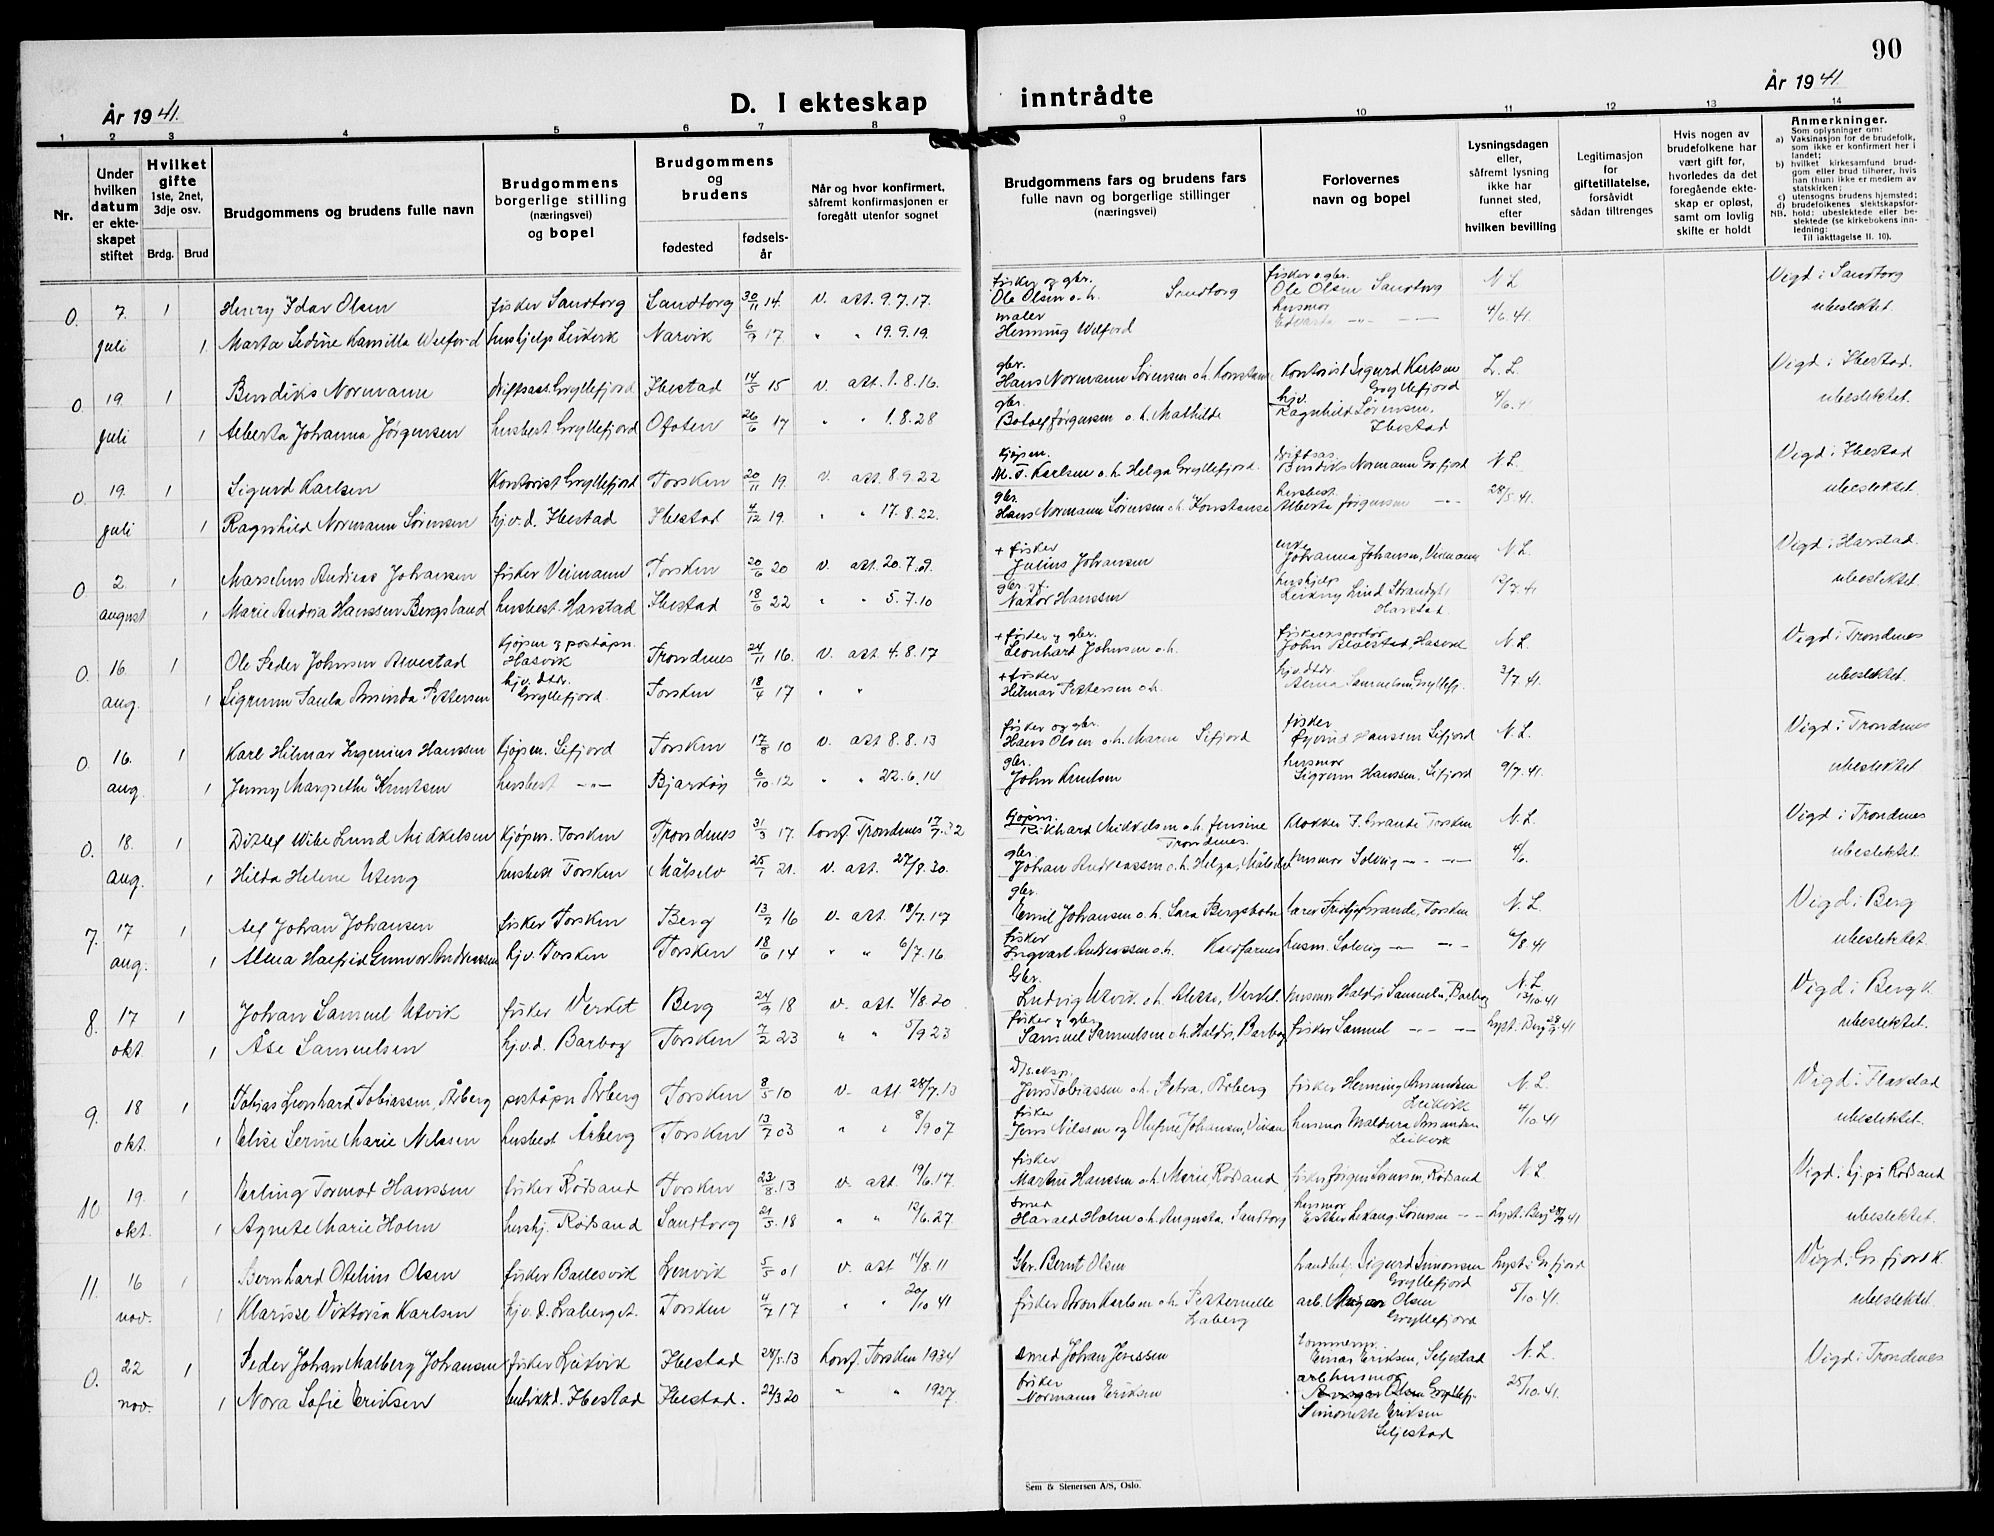 90
År 1941.
D. I ekteskap inntrådte
År 1941
1 2 3 4 5 6 7 8 9 10 11 12 13 14
Nr.
Under hvilken datum er ekteskapet stiftet
Hvilket gifte 1ste, 2net, 3dje osv.
Brdg. Brud
Brudgommens og brudens fulle navn
Brudgommens borgerlige stilling (næringsvei) og bopel
Brudgommens og brudens
fødested
fødselsår
Når og hvor konfirmert, såfremt konfirmasjonen er foregått utenfor sognet
Brudgommens fars og brudens fars fulle navn og borgerlige stillinger (næringsvei)
Forlovernes navn og bopel
Lysningsdagen eller, såfremt lysning ikke har funnet sted, efter hvilken bevilling
Legitimasjon for giftetillatelse, forsåvidt sådan tiltrenges
Hvis nogen av brudefolkene har vært gift før, hvorledes da det foregående ekteskap er opløst, samt om lovlig skifte er holdt
Anmerkninger.
Som oplysninger om:
a) Vaksinasjon for de brudefolk, som ikke er konfirmert her i landet;
b) hvilket kirkesamfund brudgom eller brud tilhører, hvis han (hun) ikke er medlem av statskirken;
c) utensogns brudens hjemsted;
d) brudefolkenes slektskapsforhold: ubeslektede eller beslektede (se kirkebokens innledning:
NB. Til iakttagelse II. 10).
fisker og gbr. fisker o gbr.
0. 7. 1 Henry Idar Olsen fisker Sandtorg Sandtorg 30/11 14. v. att. 9.7.17. Ole Olsen o.h. Sandtorg Ole Olsen Sandtorg N L Vigd i Sandtorg
maler husmor ubeslektet.
juli 1. Marta Sedine Kamilla Welford hushjelp Leikvik Narvik 6/9 17 " " 19.9.19. Henning Welford Edvarda -"- 4/6.41.
gbr.
0. 19. 1 Bendiks Normann driftsass. Gryllefjord Ibestad 14/5 15 v. att. 1.8.16. Hans Normann Sørensen o.h. Konstanse Kontorist Sigurd Karlsen Gryllefjord L.L. Vigd i Ibestad.
gbr. hjv. ubeslektet.
juli 1 Alberta Johanna Jørgensen husbest Gryllefjord Ofoten 26/6 17 " " 1.8.28 Botolf Jørgensen o.h. Mathilde Ragnhild Sørensen, Ibestad 4/6.41
kjøpm. driftsas.
0. 19. 1 Sigurd Karlsen Kontorist Gryllefjord Torsken 20/11 19. v. att. 8.9.22 M. T. Karlsen o.h. Helga Gryllefjord. Bendiks Normann Grfjord N L. Vigd i Ibestad
gbr. husbest. ubeslektet.
juli 1 Ragnhild Normann Sørensen hj.v.d. Ibestad Ibestad 4/12 19. " " 17.8.22. Hans Normann Sørensen o.h. Konstanse Alberta Jørgensen -"- 28/5.41.
+ fisker enke
0 2. 1 Marselius Andreas Johansen fisker Veimann Torsken 20/6 20 v. att. 20.7.09. Julius Johansen Johanna Johansen, Veimann N L. Vigd i Harstad.
gbr. og f. hushjelp ubeslektet.
august 1 Marie Andrea Hanssen Bergsland husbest. Harstad Ibestad 18/6 22 " " 5.7.10 Nator Hanssen Harstad 12/7.41
kjøpm og poståpn. + fisker og gbr. fiskeeksportør
0. 16 1 Ole Peder Johnsen Alvestad Hasvik Trondenes 24/11 16. v. att 4.8.17 Leonhard Johnsen o.h. John Alvestad, Hasvik N L. Vigd i Trondenes
hj.v. dtr. + fisker hjv dtr. ubeslektet.
aug. 1 Sigrunn Paula Aminda Pettersen Gryllefjord. Torsken 18/4 17 " " Hilmar Pettersen o.h. Alma Samuelsen Gryllefj. 3/7 41.
fisker og gbr. fisker
0. 16. 1 Karl Hilmar Ingenius Hanssen Kjøpm. Sifjord Torsken 17/8 10 v. att 8.8.13 Hans Olsen o.h. Maren Sifjord Øyvind Hanssen Sifjord N.L. Vigd i Trondenes
gbr. husmor ubeslektet.
aug 1 Jenny Margrethe Knutsen husbest -"- Bjarkøy 6/10.12 " " 22.6.14 John Knutsen Sigrunn Hanssen, Sifjord 9/7.41.
kjøpm.
0. 18. 1 Ditlef Wibe Lund Mikkelsen kjøpm. Torsken Trondenes 31/3 17. Konf Trondenes 17/7.32 Rikhard Mikkelsen o.h. Jensine Trondenes. Klokker J. Grande Torsken N.L. Vigd i Trondenes
gbr. ubeslektet.
aug. 1 Hilda Helene Uteng husbest Torsken Målselv 25/1 21. v. att. 27/8.30. Johan Andreassen o.h. Helga, Målselv husmor Solveig -"- 4/6.
gbr.
7. 17 1 Alf Johan Johansen fisker Torsken Berg 13/7 16 v. att. 18/7.17 Emil Johansen o.h. Sara Bergsbotn lærer Fridtjof Grande, Torsken N.L. Vigd i Berg
fisker ubeslektet.
aug. 1 Alma Halfrid Gunvor Andreassen hj.v. Torsken Torsken 18/6 14 " " 6/7.16 Ingvart Andreassen o.h. Kaldfarnes husm. Solveig -"- 6/8 41
Gbr.
8. 17 1 Johan Samuel Utvik fisker Veidet Berg 24/9 18 v. att. 4/8.20 Ludvig Utvik o.h. Alette, Veidet. husmor Haldis Samuelsen, Barbog N.L. 13/10 41 Vigd i Berg k.
fisker og gbr. ubeslektet.
okt. 1 Åse Samuelsen hj.v.d. Barbog Torsken 7/2 23 " " 5/9 23 Samuel Samuelsen o.h. Haldis, Barbog fisker Samuel -"- lyst. Berg 28/9 41
D/s.eksp.
9. 18 1 Tobias Leonhard Tobiassen, Årberg poståpn Årberg Torsken 8/5 10 v. att 28/7.13 Jens Tobiassen o.h. Petra, Årberg fisker Henning Amundsen Leikvik N.L. Vigd i Flakstad
fisker ubeslektet.
okt. 1 Elise Serine Marie Nilssen husbest Årberg Torsken 13/7 03 " " 8/9 07 Jens Nilssen og Olufine Johansen, husmor Leikvik 4/10 41
fisker
10 19. 1 Erling Tormod Hanssen fisker Rødsand Torsken 23/8.13 v. att. 19/6.17 Martin Hanssen o.h. Marie Rødsand fisker Jørgen Sørensen, Rødsand N.L. Vigd i hj. på Rødsand
smed husmor ubeslektet.
okt. 1 Agnete Marie Holm hushj. Rødsand Sandtorg 21/5.18 " " 12/6.27 Harald Holm o.h. Augusta, Sandtorg Sørensen -"- lyst. Berg 28/9 41
11. 16 1 Bernhard Otelius Olsen fisker Ballesvik Lenvik 5/5 01 v. att 14/8.11 Gbr. Bernt Olsen handbetj. Sigurd Simonsen Gryllefjord lyst i Grfjord Vigd i Grfjord k.
nov. 1 Klarisse Viktoria Karlsen hj.v.d. Laberget. Torsken 4/7 17 " " 20/10 41 fisker Aron Karlsen o.h. Petternelle Laberg arb. Olsen Gryllefjord 5/10.41. ubeslektet.
0. 22 1 Peder Johan Malberg Johansen fisker Leikvik Ibestad 28/5.13 Konf. Torsken 1934 smed Johan Jenssen Einar Eriksen, Seljestad N.L. Vigd i Trondenes
fisker arb husmor
nov. 1 Nora Sofie Eriksen Ibestad Ibestad. 22/3 20 " " 1927 Normann Eriksen Olsen Gryllefj. 25/10.41.
Simonette Eriksen
Seljestad
Sem & Stenersen A/S, Oslo.